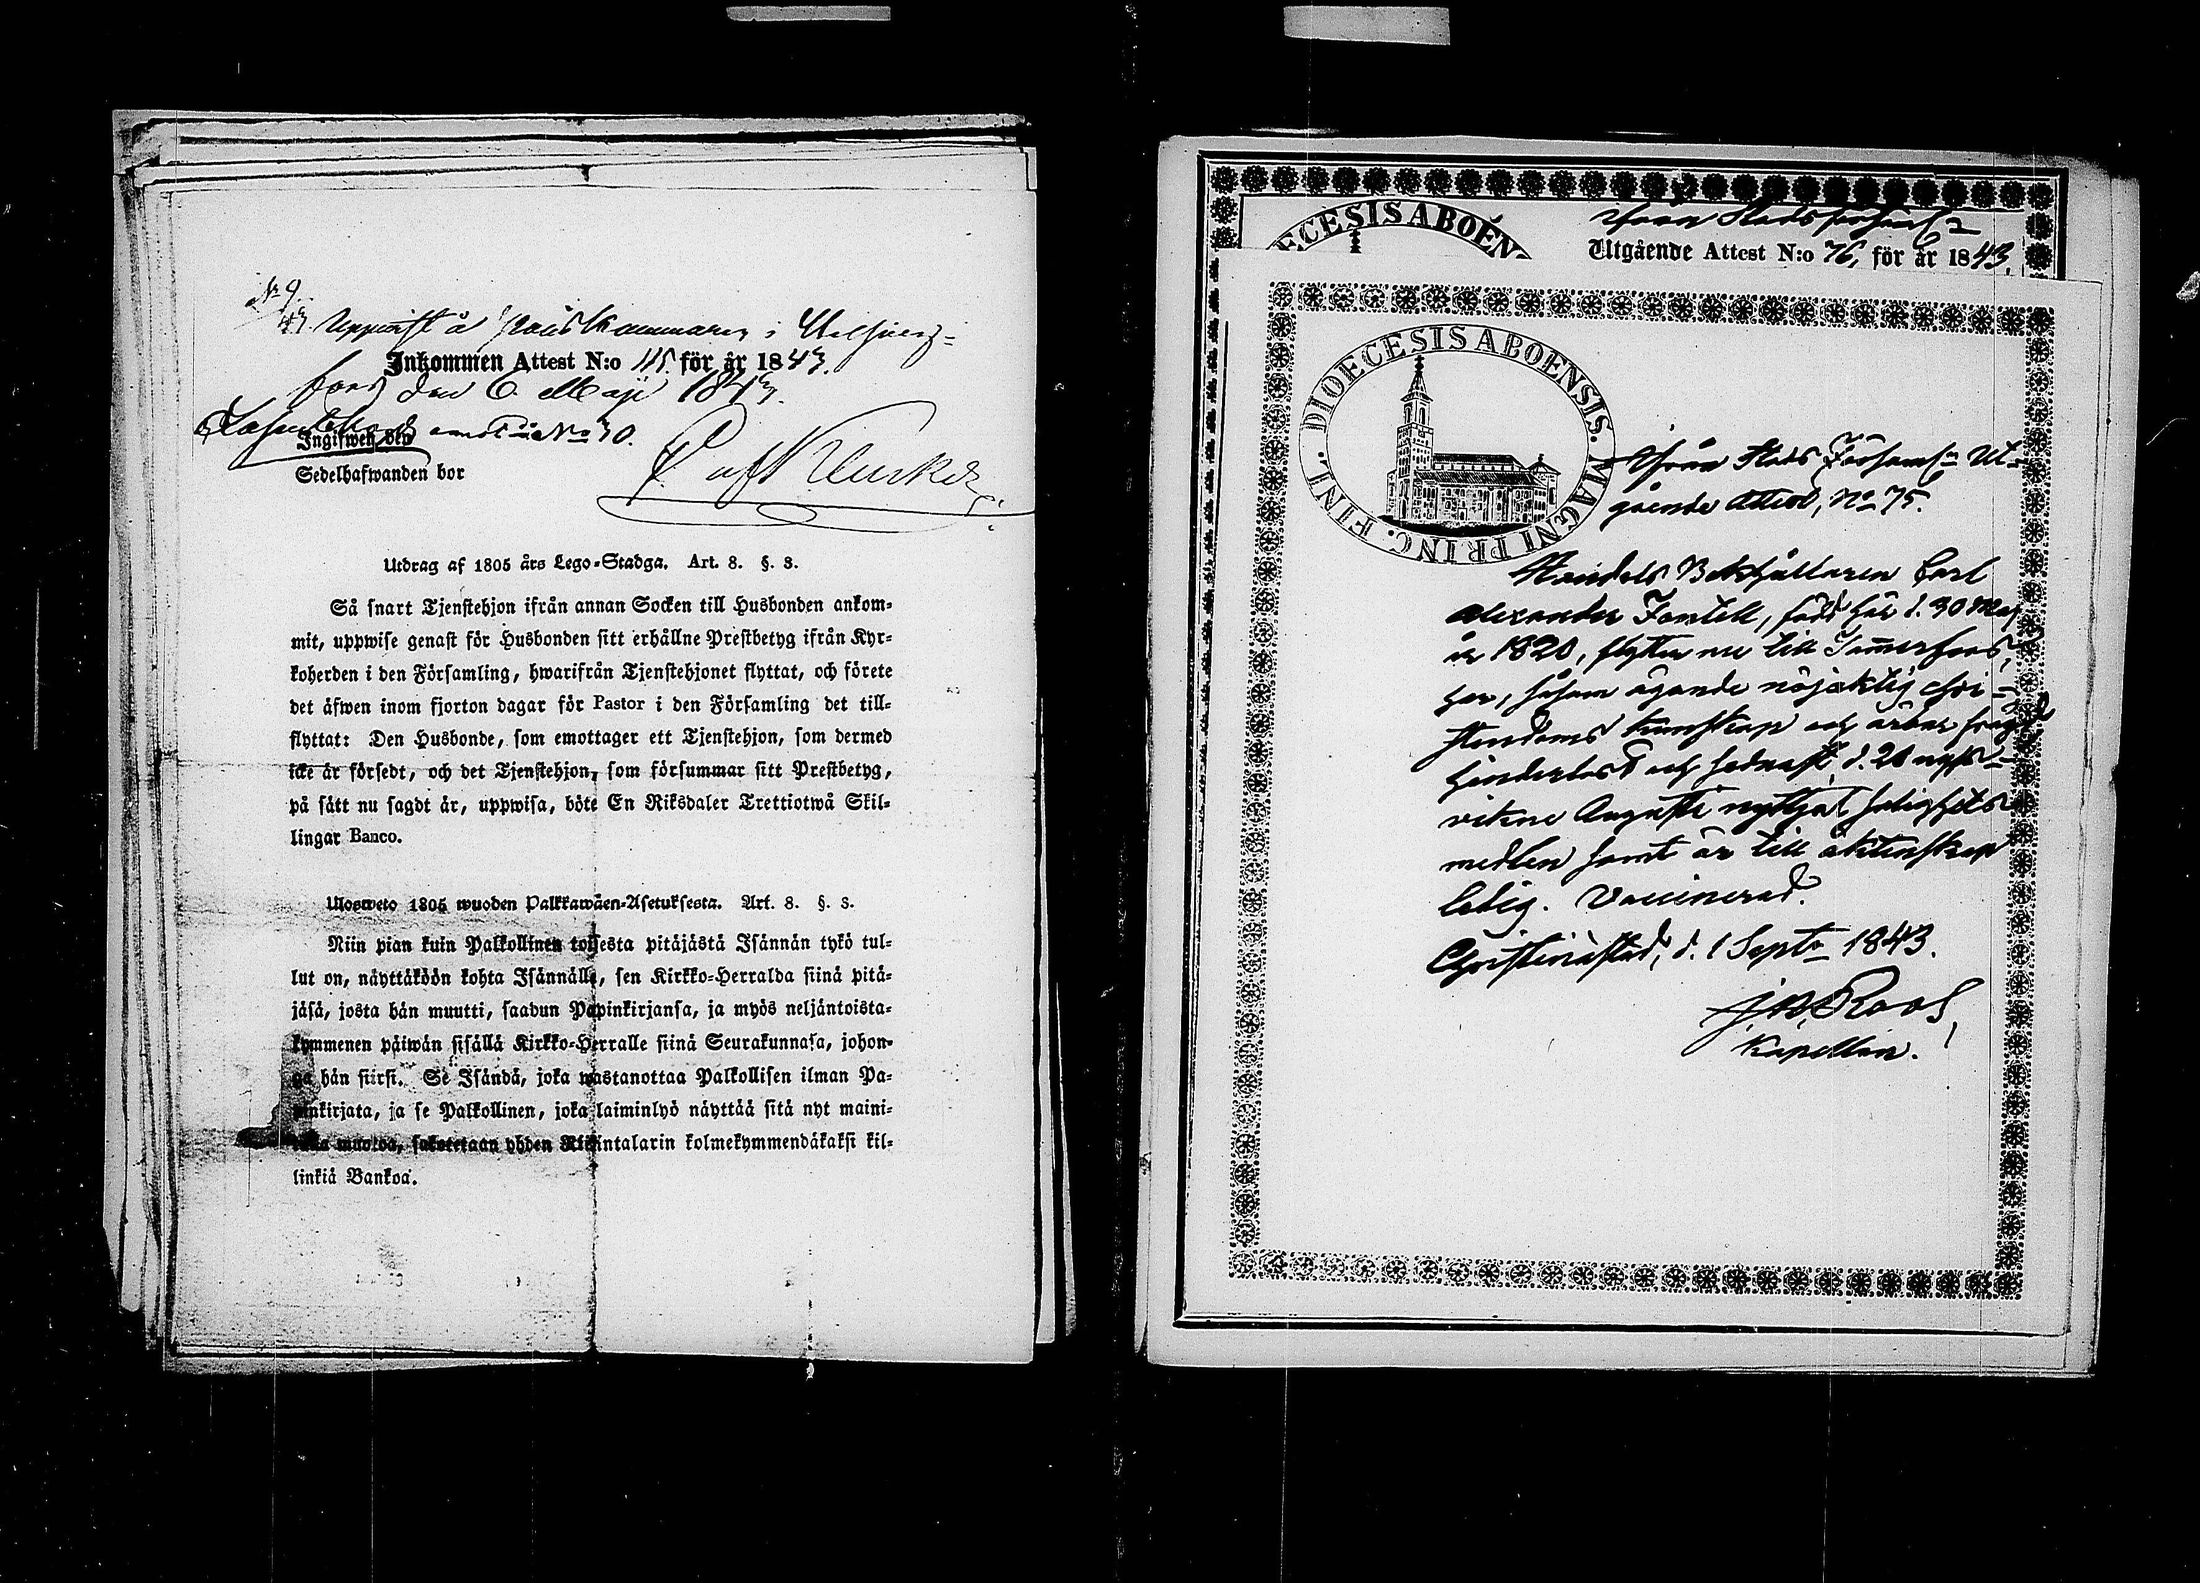 No 9.
43. Uppvist å Poliskammaren i Helsing=
Inkommen Attest N:o 115. för år 1843.
fors den 6 Maji 1843.
No 30.
Ingifweh den
Sedelhafwanden bor
Utdrag af 1805 års Lego-Stadga. Art. 8. §. 3.
Så snart Tjenstehjon ifrån annan Socken till Husbonden ankom-
mit, uppwise genast för Husbonden sitt erhållne Prestbetyg ifrån Kyr-
koherden i den Församling, hwarifrån Tjenstehjonet flyttat, och förete
det äfwen inom fjorton dagar för Pastor i den Församling det till-
flyttat: Den Husbonde, som emottager ett Tjenstehjon, som dermed
icke är försedt, och det Tjenstehjon, som försummar sitt Prestbetyg,
på sätt nu sagdt är, uppwisa, böte En Riksdaler Trettiotwå Skil-
lingar Banco.
Ulosweto 1805 wuoden Palkkawäen-Asetuksesta. Art. 8. §. 3.
Niin pian kuin Palkollinen toisesta pitäjästä Isännän tykö tul-
lut on, näyttäköön kohta Isännälle, sen Kirkko-Herralda siinä pitä-
jäsä, josta hän muutti, saadun Papinkirjansa, ja myös neljäntoista-
kymmenen päiwän sisällä Kirkko-Herralle siinä Seurakunnasa, johon-
ga hän siirsi. Se Isändä, joka wastanottaa Palkollisen ilman Pa-
pinkirjata, ja se Palkollinen, joka laiminlyö näyttää sitä nyt maini-
muotoa, sakotetaan yhden Rikintalarin kolmekymmendäkaksi kil-
linkiä Bankoa.
DIOECESIS ABOEN
Från Stadsförsaml:n
Utgående Attest N:o 76, för år 1843.
DIOECESIS ABOENSIS. MAGNI PRINC. FINL.
Från Stads Församl:n Ut=
gående Attest, No 75.
Handels Bokhållaren Carl
Alexander Fontell, född här d. 30 Maj
år 1820, flyttar nu till Tammerfors,
har, såsom ägande nöjaktig Chri=
stendoms kunskap och ärbar frägd
hinderlöst och sednast d. 20 nyss=
vikne Augusti nyttjat salighets
medlen samt är till äktenskap
ledig. Vaccinerad.
Christinæstad, d. 1 Sept. 1843.
Roos,
Kapellan.